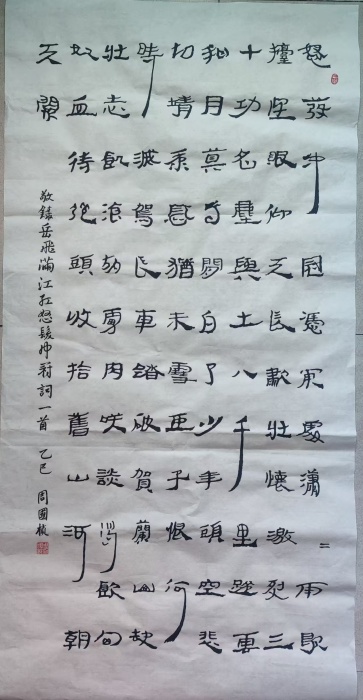 怒發冲冠憑闌處瀟〻雨歇
擡望眼仰天長歎壯懷激烈三
十功名塵與土八千里路雲
和月莫等閑白了少年頭空悲
切靖康恥猶未雪臣子恨何
時滅駕長車踏破賀蘭山缺
壯志飢飡胡虜肉笑談渴飲匈
奴血待從頭收拾舊山河朝
天闕
敬錄岳飛滿江紅怒髮冲冠詞一首 乙巳 周國